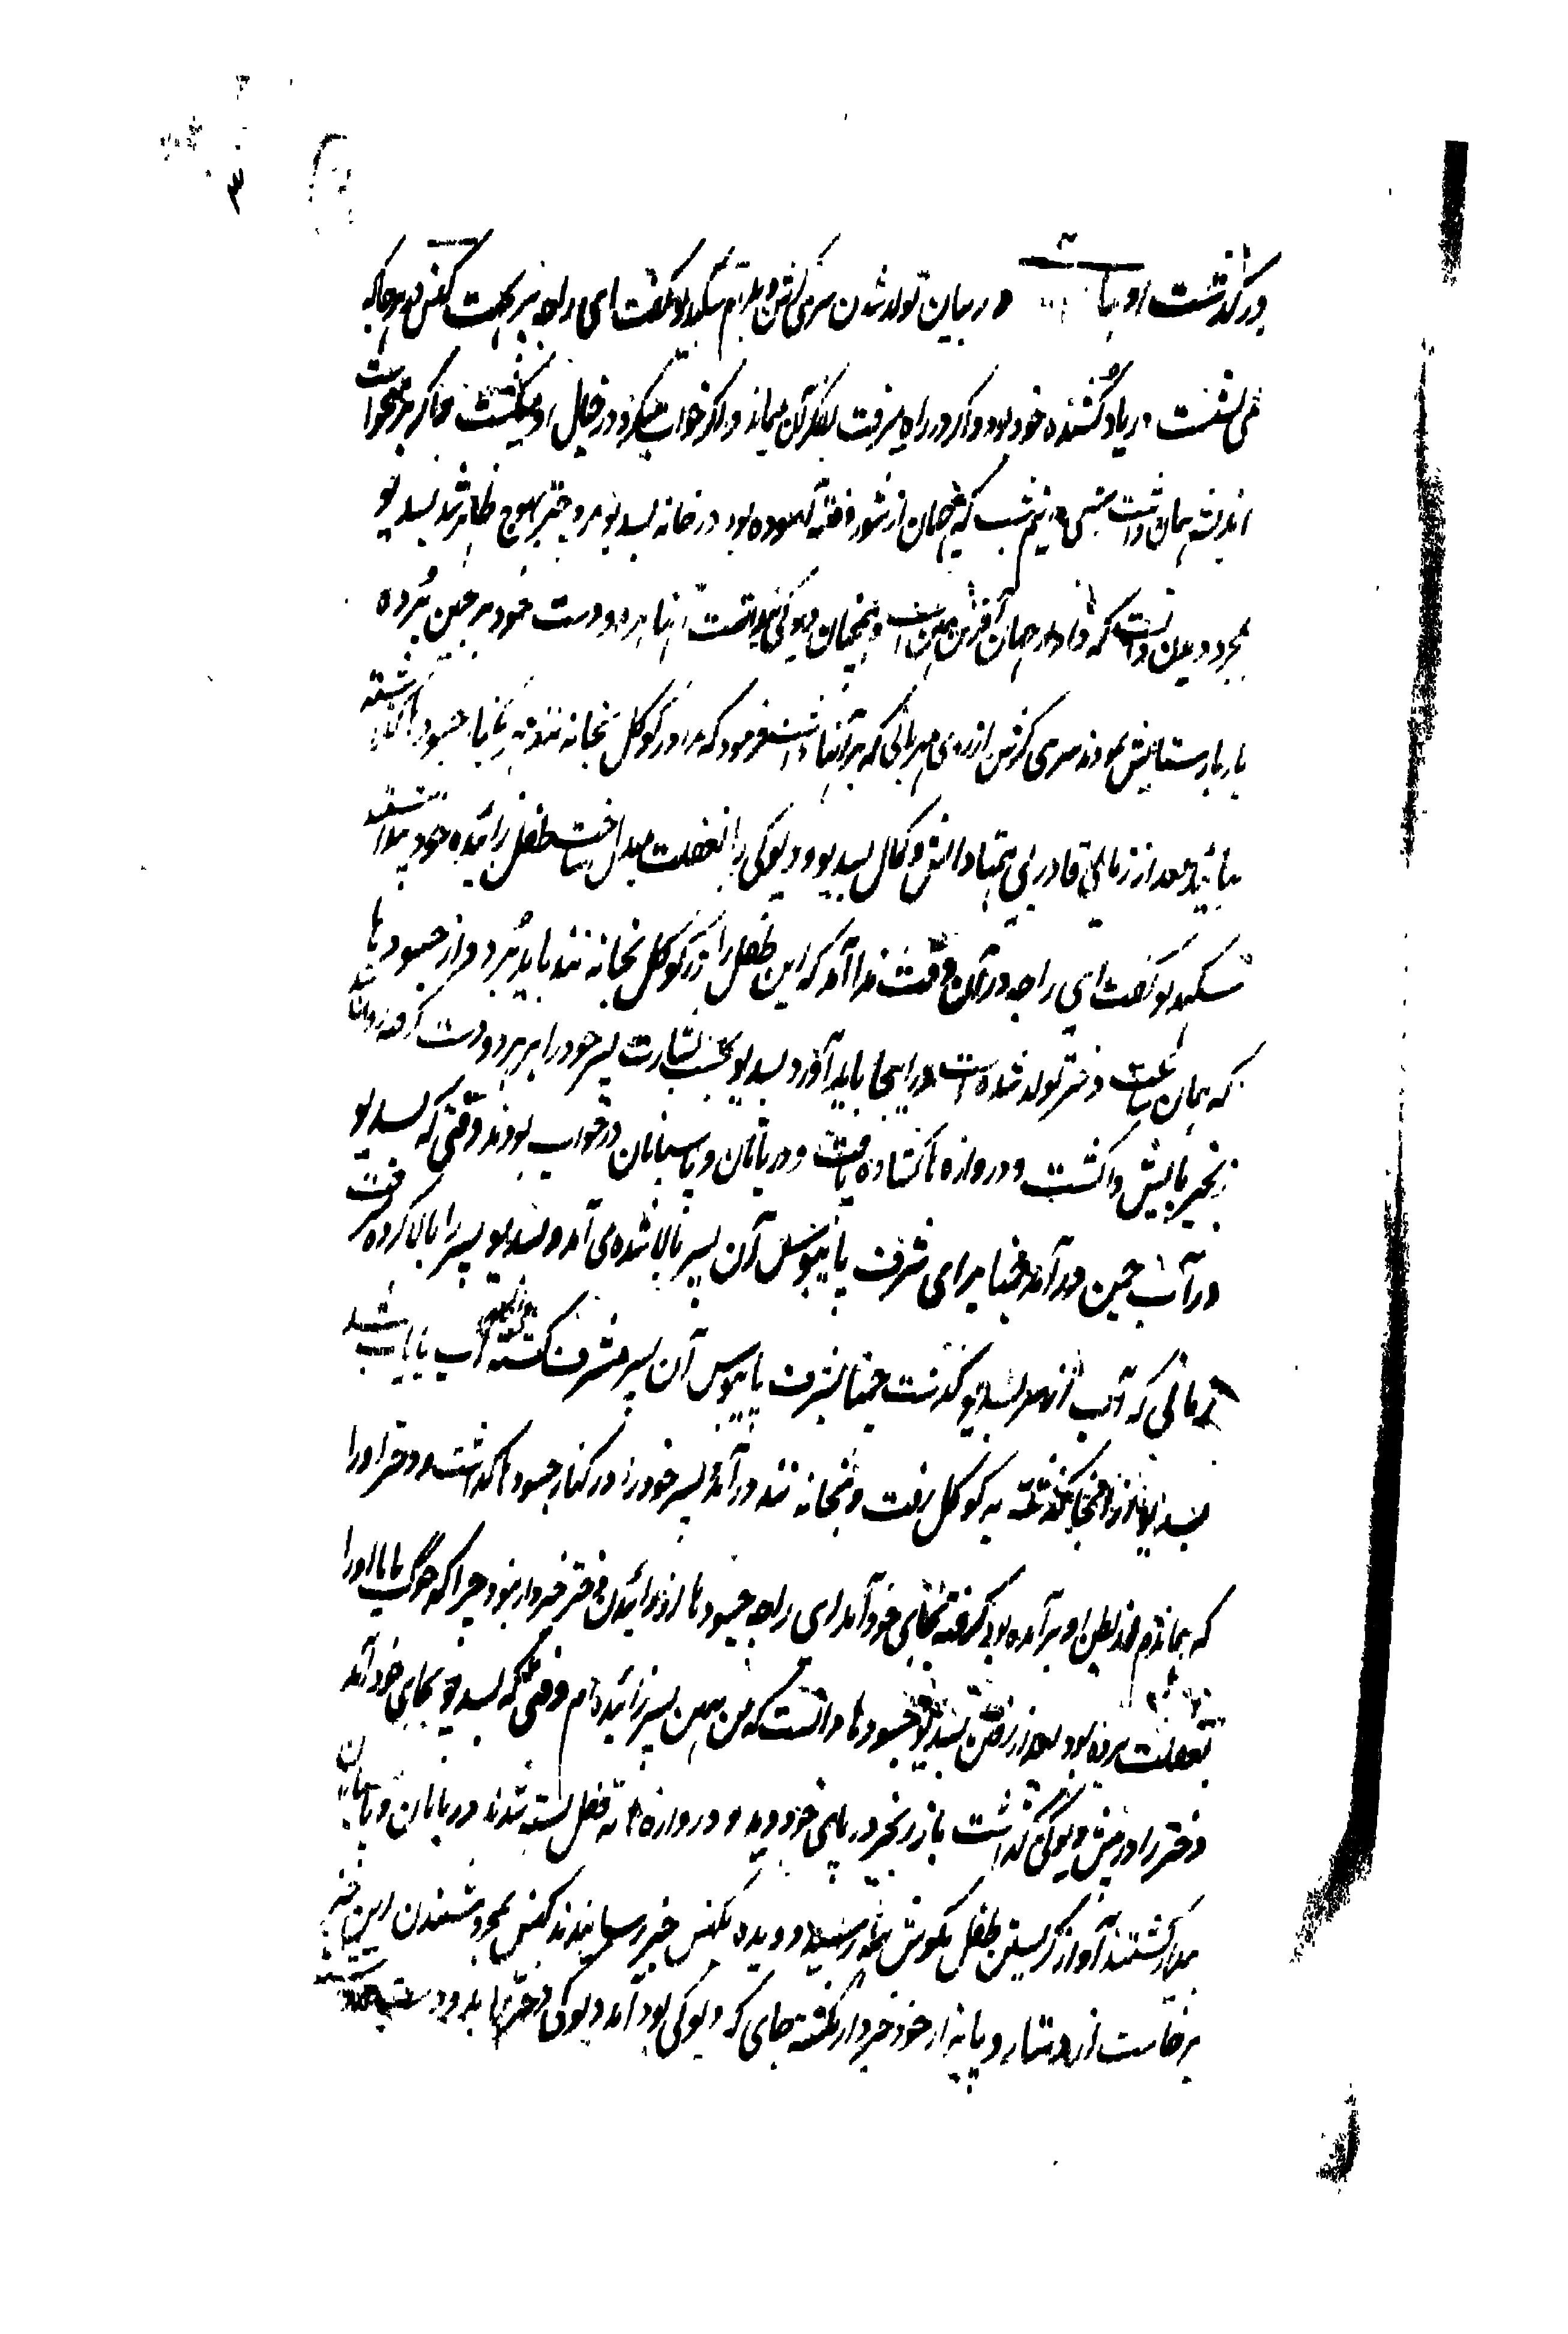 ۳
در گذشت ادهیا در بیان تولد شدن سری کرشن و بلرام سکدیو گفت ای راجه پریچهت کنس هرجا که
می نشست در یاد کشنده خود بود و اگر در راه میرفت بفکر آن میماند و اگر خواب میکرد در خیال او میگشت
اندیشه همان داشت نیم شب که جهان از شور و فتنه آسوده بود در خانه بسدیو مر و چتر بهوج ظاهر شد بسدیو
بمجرد دیدن دانست که دادار جهان آفرین همین است و همچنان دیوکی هم دانست اینها هر دو دست خود بر جبین برده
بار بار ستایش نمودند سری کرشن از روی مهربانی که بر آنها داشت فرمود که مرا در گوکل بخانه نند
بعد از زمانی قادر بی همتا دانش و کمال بسدیو و دیوکی را بغفلت مبدل ساخت طفل زائیده خود
سکدیو گفت ای راجه در آن وقت ندا آمد که این طفل را در گوکل بخانه نند باید برد و از جسودها
که همان ساعت دختر تولد شده است در اینجا باید آورد بسدیو بحسب بشارت پسر خود را بر هر دو دست گرفته روان شد
زنجیر پایش وا گشت و دروازه ها کشاده یافت و دربانان و پاسبانان در خواب بودند وقتی که بسدیو
در آب جمن در آمد جمنا برای شرف پایبوس آن پسر بالا شده می آمد و بسدیو پسر را بالا کرده میرفت
زمانی که آب از سر بسدیو گذشت جمنا بشرف پایبوس آن پسر مشرف گشته آب پایاب شد
بسدیو از آنجا گذشته به گوکل رفت و بخانه نند در آمد پسر خود را در کنار جسودها گذاشت و دختر او را
که هماندم از بطن او بر آمده بود گرفته بجای خود آمد ای راجه جسودها از زائیدن دختر خبردار نبود چرا که جوگ مایا او را
بغفلت برده بود بعد از رفتن بسدیو جسودها دانست که من همین پسر زائیده ام وقتی که بسدیو بجای خود آمد
دختر را در پیش دیوکی گذاشت باز زنجیر در پای خود دید و دروازه ها به قفل بسته شدند دربانان و پاسبانان
بیدار گشتند آواز گریستن طفل بگوش همه رسید دویده بکنس خبر رسانیدند کنس بمجرد شنیدن این خبر
برخاست از دستار و پا به از خود خبردار نگشته جای که دیوکی بود آمد دیوکی دختر را